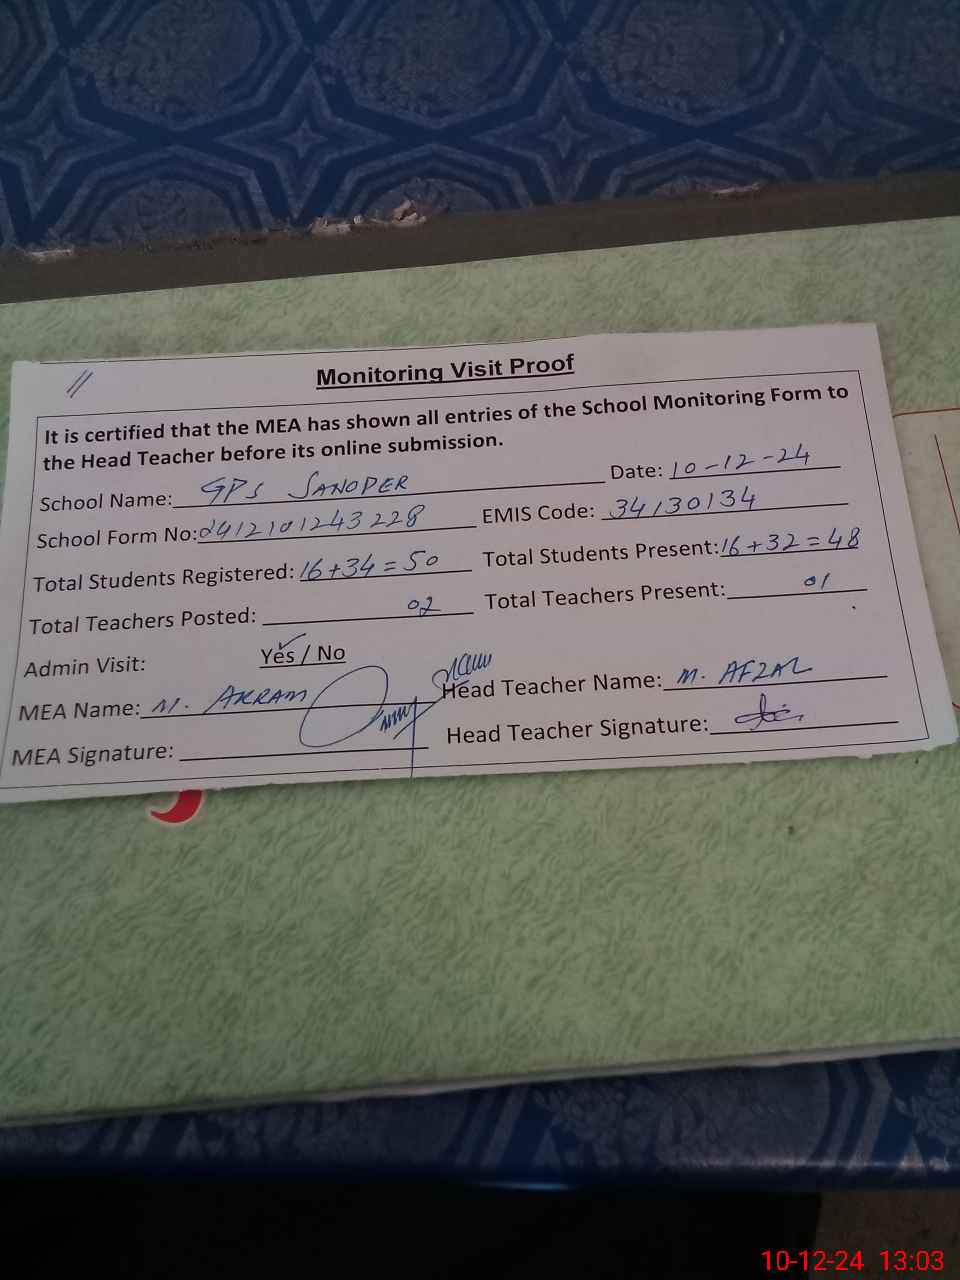 //
Monitoring Visit Proof
It is certified that the MEA has shown all entries of the School Monitoring Form to
the Head Teacher before its online submission.
School Name: GPS SANOPER Date: 10-12-24
School Form No: 2412101243228 EMIS Code: 34130134
Total Students Registered: 16+34=50 Total Students Present: 16+32=48
Total Teachers Posted: 02 Total Teachers Present: 01
Admin Visit: Yes / No
MEA Name: M. AKRAM Head Teacher Name: M. AFZAL
MEA Signature: Head Teacher Signature:
10-12-24 13:03